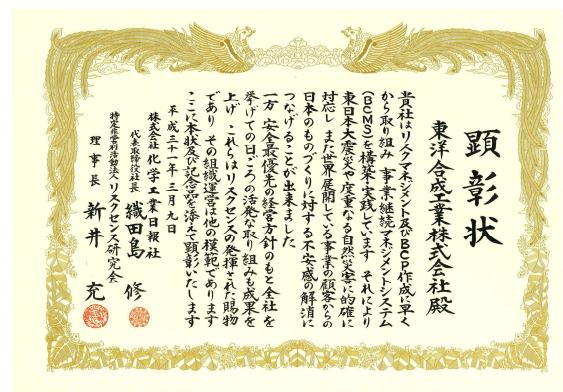 顕彰状
東洋合成工業株式会社殿
貴社はリスクマネジメント及びBCP作成に早く
から取り組み 事業継続マネジメントシステム
(BCMS)を構築・実践しています それにより
東日本大震災や度重なる自然災害に的確に
対応し また世界展開している事業の顧客からの
日本のものづくりに対する不安感の解消に
つなげることが出来ました
一方 安全最優先の経営方針のもと全社を
挙げての日ごろの活発な取り組みも成果を
上げ これらはリスクセンスの発揮された賜物
であり その組織運営は他の模範であります
ここに本状及び記念品を添えて顕彰いたします
平成三十一年三月九日
株式会社 化学工業日報社
代表取締役社長 織田島 修
特定非営利活動法人 リスクセンス研究会
理事長 新井 充